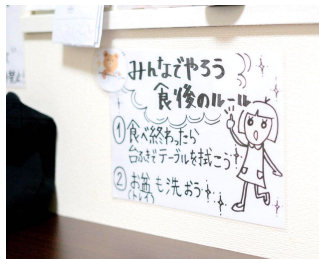 みんなでやろう
食後のルール
① 食べ終わったら
台ふきでテーブルを拭こう
② お盆も洗おう
(トレイ)